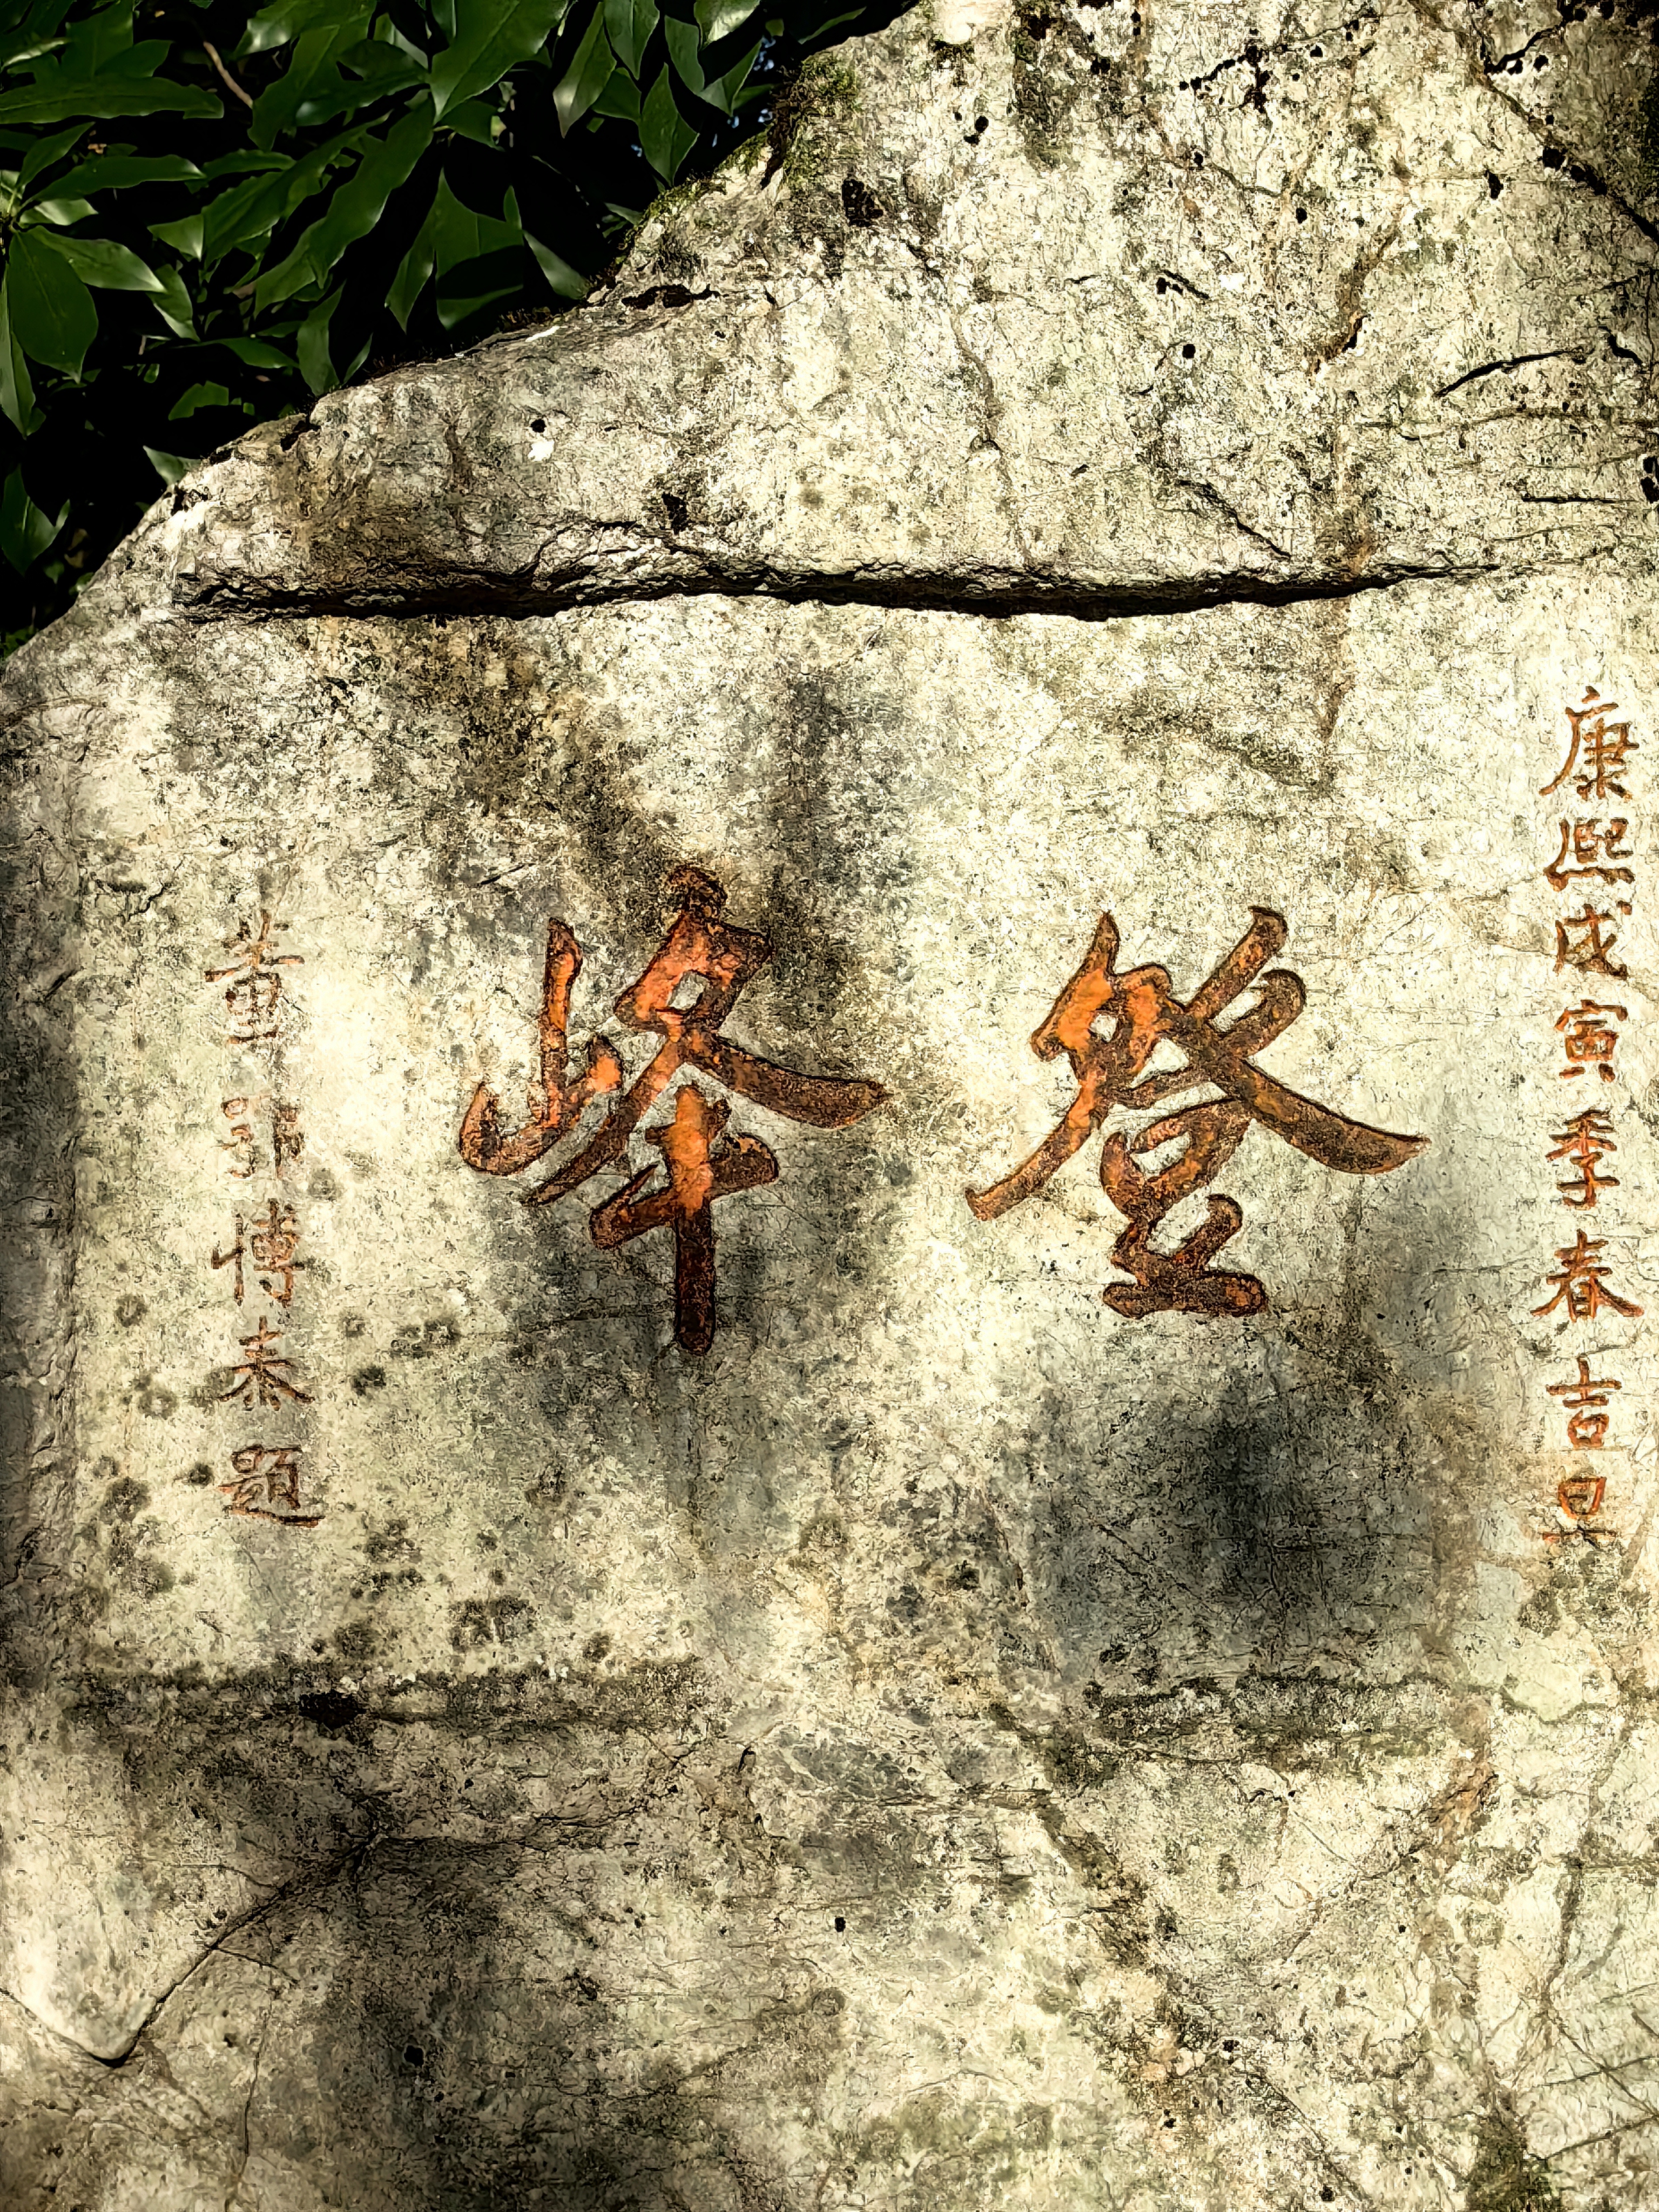 康熙戊寅季春吉旦
登峰
黄博泰題